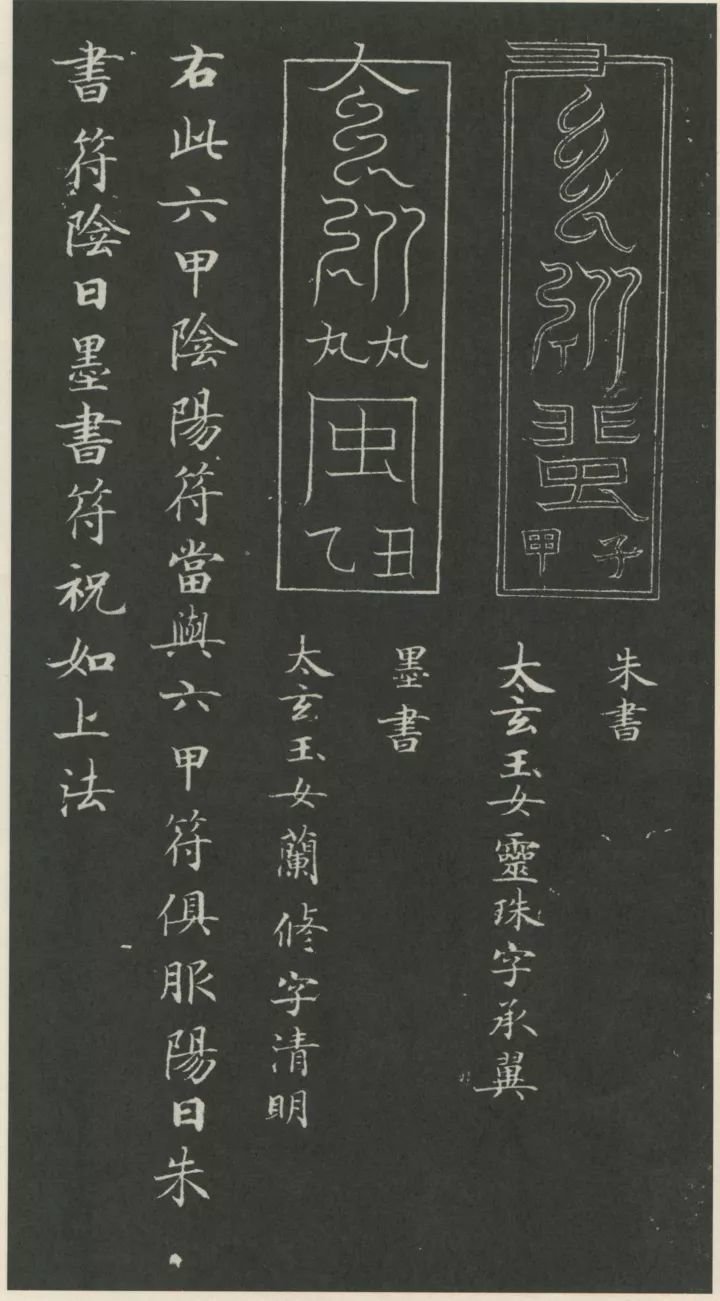 甲子
朱書
太玄玉女靈珠字承翼
乙丑
墨書
太玄玉女蘭修字清明
右此六甲陰陽符當與六甲符俱服陽日朱
書符陰日墨書符祝如上法